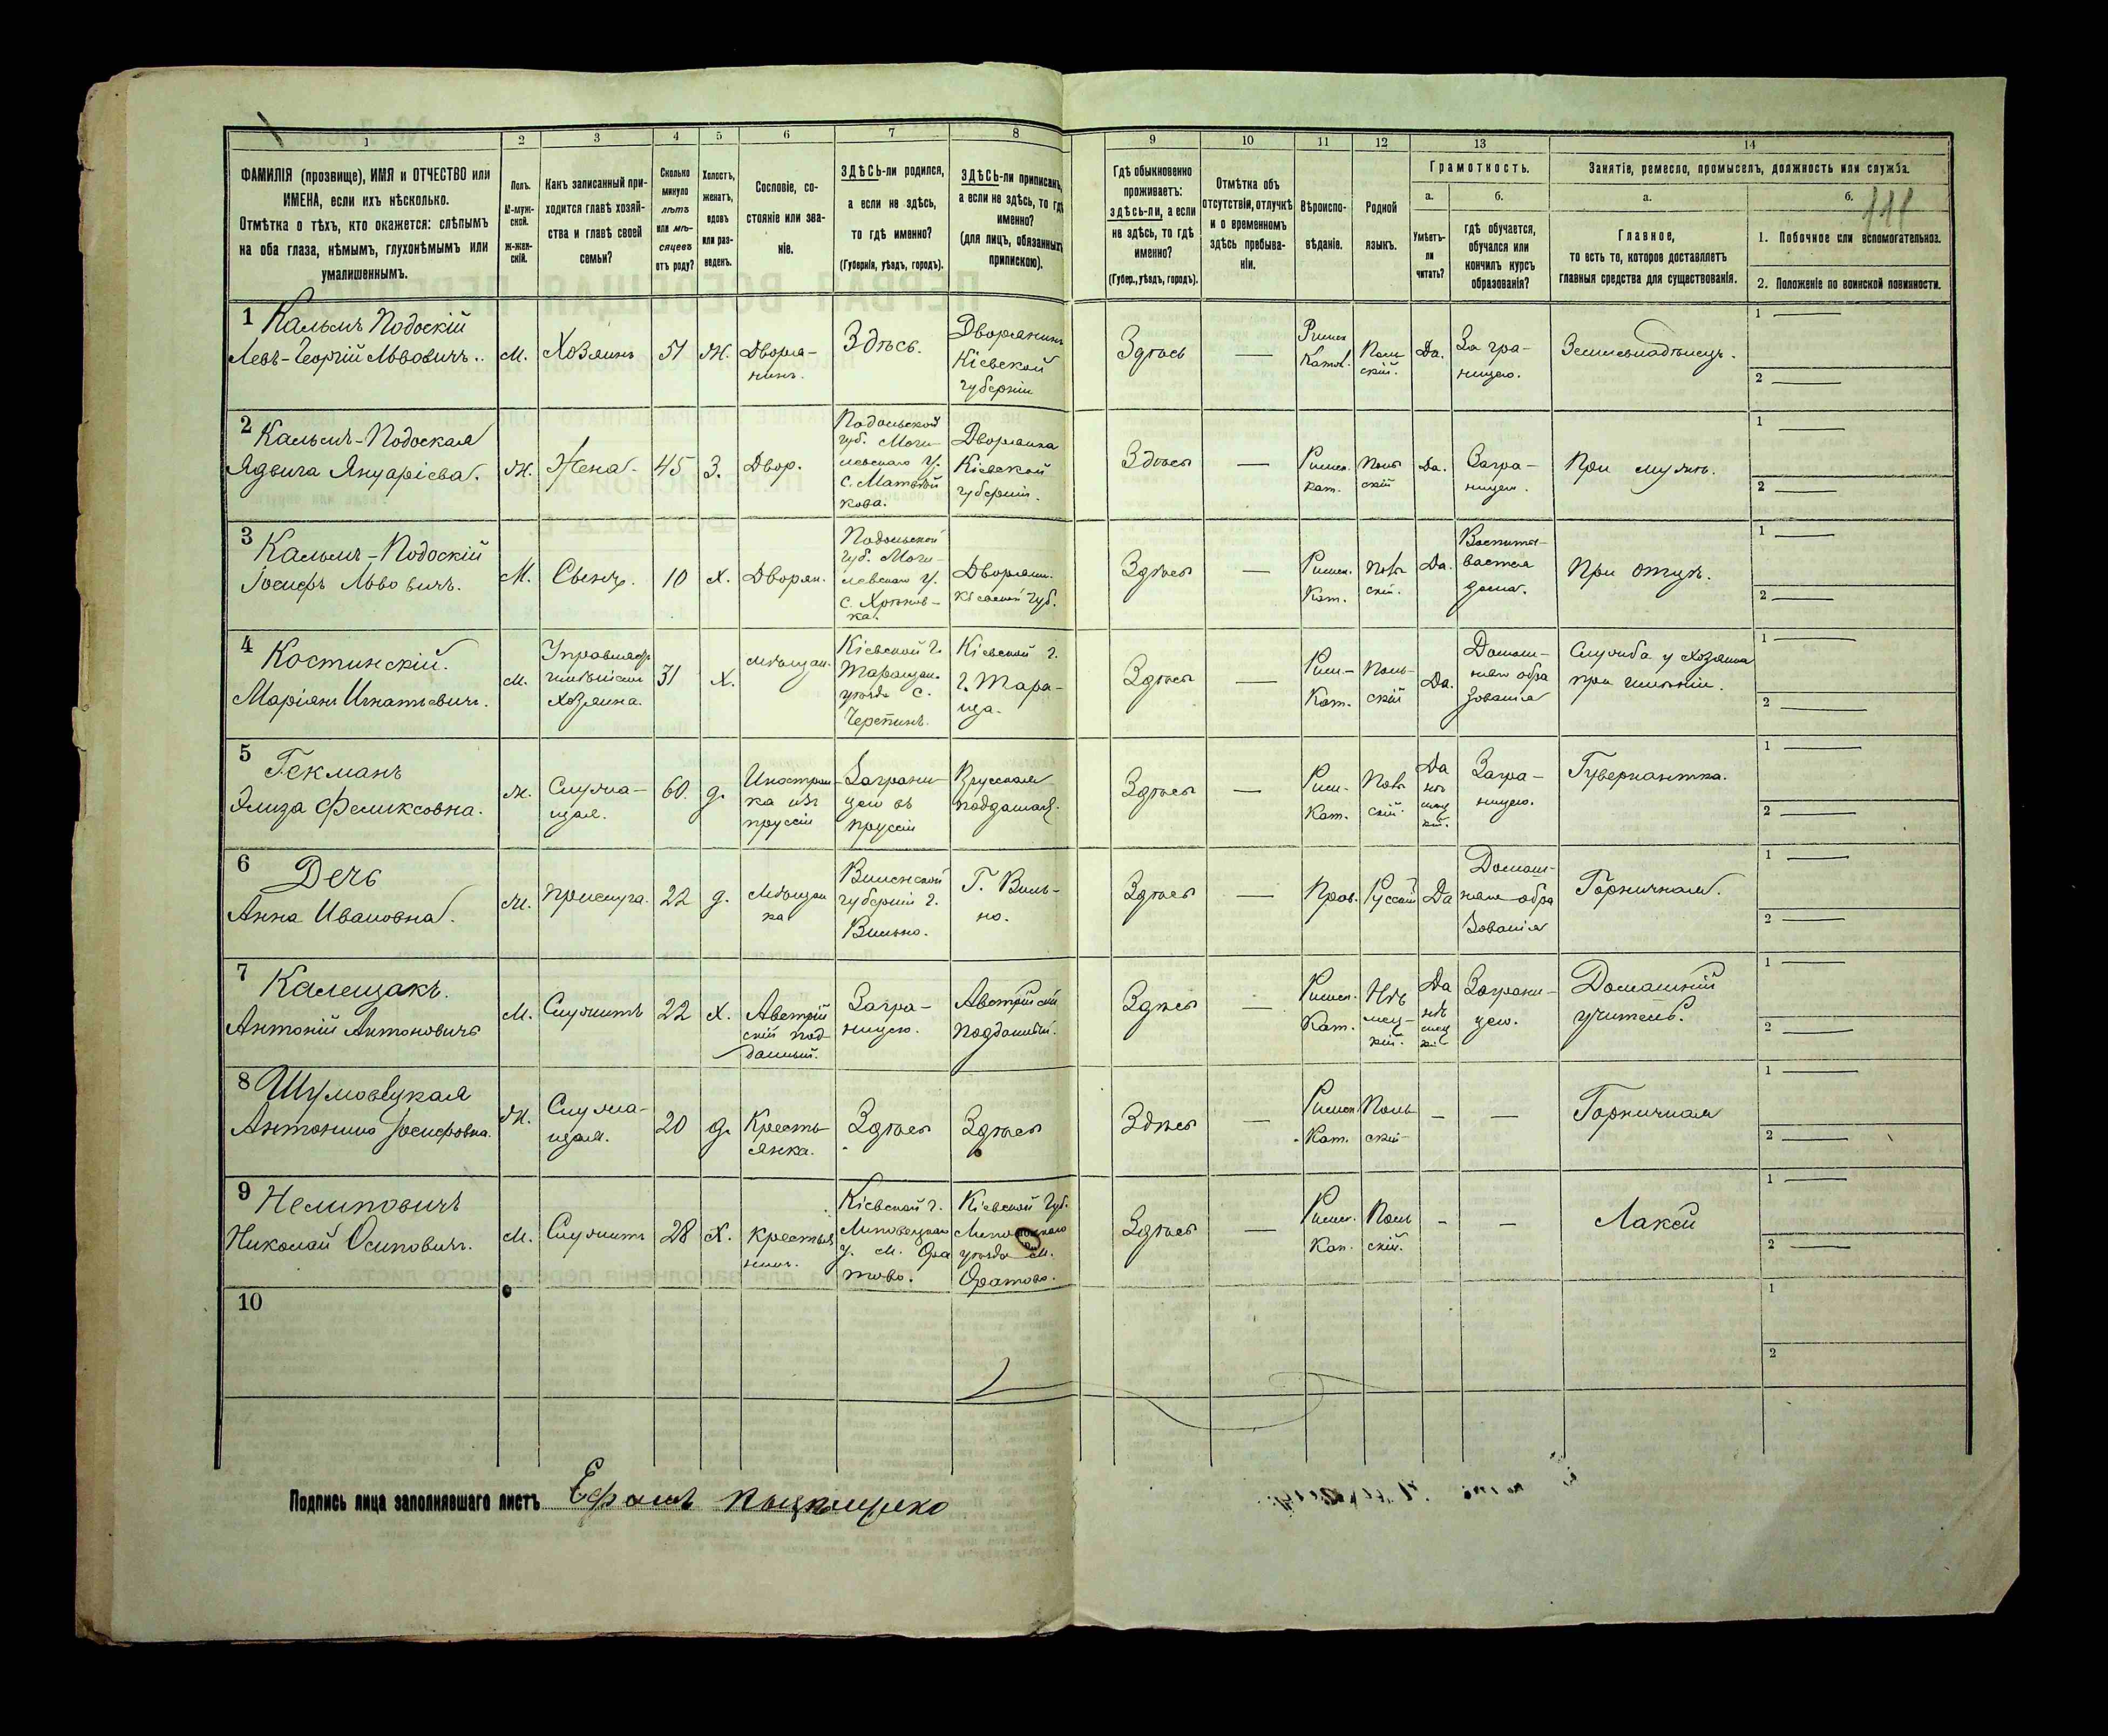 1 2 3 4 5 6 7 8 9 10 11 12 13 14
ФАМИЛІЯ (прозвище), ИМЯ и ОТЧЕСТВО или
ИМЕНА, если ихъ нѣсколько.
Отмѣтка о тѣхъ, кто окажется: слѣпымъ
на оба глаза, нѣмымъ, глухонѣмымъ или
умалишеннымъ.
Полъ.
М-муж-
ской.
Ж-жен-
скій.
Какъ записанный при-
ходится главѣ хозяй-
ства и главѣ своей
семьи?
Сколько
минуло
лѣтъ
или мѣ-
сяцевъ
отъ роду?
Холостъ,
женатъ,
вдовъ
или раз-
веденъ.
Сословіе, со-
стояніе или зва-
ніе.
ЗДѢСЬ-ли родился,
а если не здѣсь,
то гдѣ именно?
(Губернія, уѣздъ, городъ).
ЗДѢСЬ-ли приписанъ,
а если не здѣсь, то гдѣ
именно?
(для лицъ, обязанныхъ
припискою).
Гдѣ обыкновенно
проживаетъ:
здѣсь-ли, а если
не здѣсь, то гдѣ
именно?
(Губер., уѣздъ, городъ).
Отмѣтка объ
отсутствіи, отлучкѣ
и о временномъ
здѣсь пребыва-
ніи.
Вѣроиспо-
вѣданіе.
Родной
языкъ.
Грамотность.
а.
Умѣетъ-
ли
читать?
б.
гдѣ обучается,
обучался или
кончилъ курсъ
образованія?
Занятіе, ремесло, промыселъ, должность или служба.
а.
Главное,
то есть то, которое доставляетъ
главныя средства для существованія.
б.
1. Побочное или вспомогательное.
2. Положеніе по воинской повинности.
1 Кальмъ Подоскій
Левъ-Георгій Львовичъ.
м.
Хозяинъ
51
Ж.
Дворя-
нинъ.
Здѣсь.
Дворянинъ
Кіевской
губерніи
Здѣсь
—
Римск
Катол.
Поль
скій.
Да.
За гра-
ницею.
Землевладѣлецъ.
1 —
2 —
2 Кальмъ-Подоская
Ядвига Януаріева.
Ж.
Жена
45
З.
Двор.
Подольской
губ. Моги-
левскаго у.
с.
кова.
Дворянка
Кіевской
губерніи.
Здѣсь
—
Римск.
кат.
Поль
скій
Да.
Загра-
ницею.
При мужѣ.
1 —
2 —
3 Кальмъ-Подоскій
Іосифъ Львовичъ.
М.
Сынъ.
10
Х.
Дворян.
Подольской
губ. Моги-
левскаго у.
с.
ка.
Дворянин.
Кіевской губ.
Здѣсь
—
Римск.
Кат.
Поль
скій.
Да.
Воспиты-
вается
дома.
При отцѣ.
1 —
2 —
4 Костинскій.
Маріянъ Игнатьевичъ.
м.
Управляющ.
имѣніемъ
Хозяина.
31
Х.
мѣщан.
Кіевской г.
Таращан.
уѣзда с.
Черепинъ.
Кіевской г.
г. Тара-
ща.
Здѣсь
—
Рим-
Кат.
Поль-
скій
Да.
Домаш-
няго обра
зованія
Служба у хозяина
при имѣніи.
1 —
2 —
5 Гекманъ
Элиза Феликсовна.
ж.
Служа-
щая.
60.
д.
Иностран-
ка изъ
пруссіи
Заграни-
цею въ
пруссіи
Прусская
подданая.
Здѣсь
—
Рим.
Кат.
Поль
скій.
Да
нѣ
мец
кій.
Загра-
ницею.
Гувернантка.
1 —
2 —
6 Дечь
Анна Ивановна.
Ж.
прислуга.
22
д.
Мѣщан
ка
Виленской
губерніи г.
Вильно.
Г. Виль-
но.
Здѣсь
—
Прав.
Русскій
Да
Домаш-
няго обра
зованія
Горничная.
1 —
2 —
7 Калещакъ.
Антоній Антоновичъ
М.
Служитъ
22
х.
Австрій
скій под-
данный.
Загра-
ницею.
Австрійскій
подданный.
Здѣсь
—
Римск.
Кат.
Нѣ
мец-
кій.
Да
нѣ
мец
кій
Заграни-
цею.
Домашній
учитель.
1 —
2 —
8 Шумовецкая
Антонина Іосифовна.
Ж.
Служа-
щая.
20
д.
Кресть
янка.
Здѣсь
Здѣсь
Здѣсь
—
Римск
Кат.
Поль
скій
—
—
Горничная
1 —
2 —
9 Нелиповичъ
Николай Осиповичъ.
М.
Служитъ
28
х.
крестья
нинъ.
Кіевской г.
Липовецкаго
у. м. Ора
тово.
Кіевской губ.
Липовецкаго
уѣзда м.
Оратово.
Здѣсь
—
Римск.
Кат.
Поль
скій.
-
—
Лакей
1 —
2 —
10
1
2
Подпись лица заполнявшаго листъ